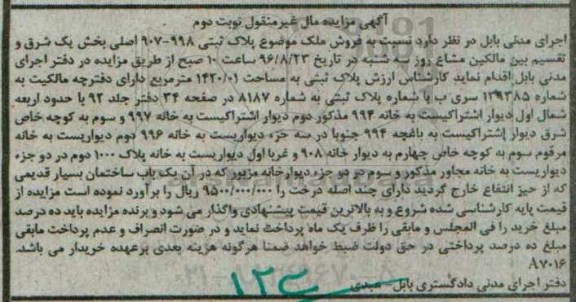 آگهی مزایده مال غیرمنقول نوبت دوم
اجرای مدنی بابل در نظر دارد نسبت به فروش ملک موضوع پلاک ثبتی ۹۹۸-۹۰۷ اصلی بخش یک شرق و
تقسیم بین مالکین مشاع روز سه شنبه در تاریخ ۹۶/۸/۲۳ ساعت ۱۰ صبح از طریق مزایده در دفتر اجرای
مدنی بابل اقدام نماید کارشناسی ارزش پلاک ثبتی به مساحت ۱۴۲۰/۰۱ مترمربع دارای دفترچه مالکیت به
شماره ۱۲۹۳۸۵ سری ب با شماره پلاک ثبتی به شماره ۸۱۸۷ در صفحه ۳۴ دفتر جلد ۹۲ با حدود اربعه
شمال اول دیوار اشتراکیست به خانه ۹۹۴ مذکور دوم دیوار اشتراکیست به خانه ۹۹۷ و سوم به کوچه خاص
شرق دیوار اشتراکیست به باغچه ۹۹۴ جنوبا در سه جزء دیواریست به خانه ۹۹۶ دوم دیواریست به خانه
مرقوم سوم به کوچه خاص چهارم به دیوار خانه ۹۰۸ و غربا اول دیواریست به خانه پلاک ۱۰۰۰ دوم در دو جزء
دیواریست به خانه مجاور مذکور و سوم در دو جزء دیوارخانه مزبور که در آن یک باب ساختمان بسیار قدیمی
که از حیز انتفاع خارج گردید دارای چند اصله درخت را ۹۵۰۰/۰۰۰/۰۰۰ ریال را برآورد نموده است مزایده از
قیمت پایه کارشناسی شده شروع و به بالاترین قیمت پیشنهادی واگذار می شود و برنده مزایده باید ده درصد
مبلغ خرید را فی المجلس و مابقی را ظرف یک ماه پرداخت نماید و در صورت انصراف و عدم پرداخت مابقی
مبلغ ده درصد پرداختی در حق دولت ضبط خواهد ضمنا هرگونه هزینه بعدی برعهده خریدار می باشد.
۸۷۰۱۶
دفتر اجرای مدنی دادگستری بابل -